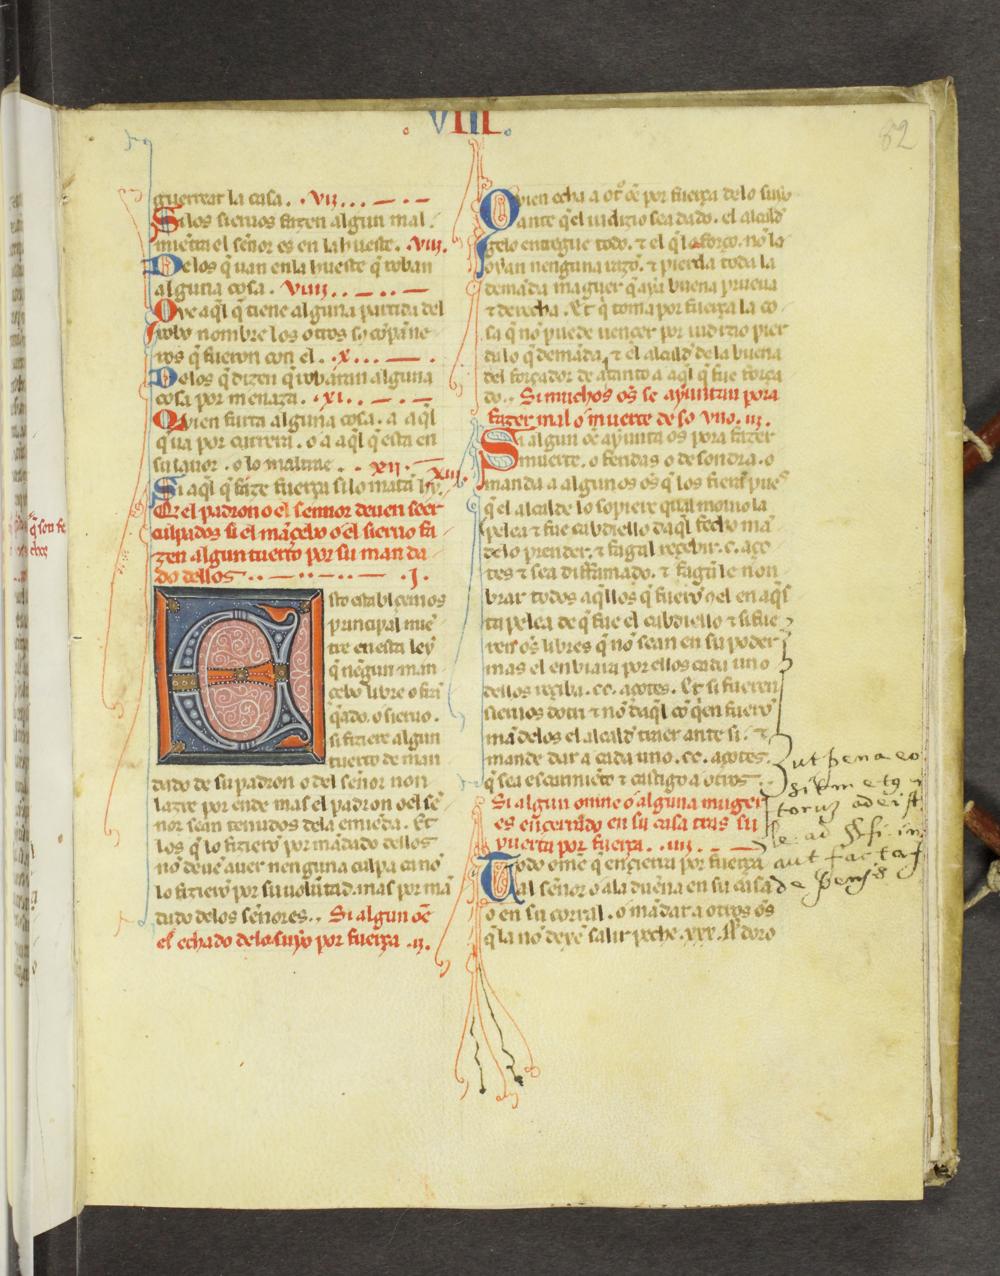 . VIII.
82
guerrear la casa . .vij. . . — . —
Si los sieruos fazen algun mal .
mientra el señor es en la hueste. .viij.
De los q̃ uan en la hueste q̃ roban
alguna cosa . viiij . . — . . —
Que aq̃l q̃ tiene alguna partida del
robo nombre los otros sos cõpañe
ros q̃ fueron con el . .x. . . . — .
De los q̃ dizen q̃ robaran alguna
cosa por menaza . .xi. . . — . —
Quien furta alguna cosa . a aq̃l
q̃ ua por carrera . o a aq̃l q̃ esta en
su lauor . o lo maltrae . . xij. —
Si aq̃l q̃ faze fuerça si lo matã xiij.
Que el padron o el sennor deuen seer
culpados si el mãcebo o el sieruo fa
zen algun tuerto por su man da
do dellos . . — . . — . . — . j.
Esto establecemos
principal mie
tre en esta ley
q̃ nẽgun man
cebo libre o frã
q̃ado . o sieruo .
si fiziere algun
tuerto de man
dado de su padron o del señor non
lazre por ende mas el padron o el se
nor sean tenudos de la emiẽda. Et
los q̃ lo fiziero por mãdado dellos
nõ deuẽ auer nenguna culpa ca nõ
lo fizierõ por su volũtad. mas por mã
dado de los señores . . Si algun oẽ
es echado de lo suyo por fuerça .ij.
Quien echa a ot̃ oẽ por fuerça de lo suyo
ante q̃ el iudizio sea dado . el alcald
gelo entregue todo . τ el q̃ lo forço . nõ la
oyan nenguna razõ . τ pierda toda la
demãda maguer q̃ aya buena prueua
τ derecha . Et q̃ toma por fuerça la co
sa q̃ nõ puede uencer por iudizio pier
da lo q̃ demãda . τ el alcald de la buena
del forçador de atanto a aq̃l q̃ fue força
do . . Si muchos oẽs se ayuntan pora
fazer mal o muerte de so vno . iij.
Si algun oẽ ayunta oẽs pora fazer
muerte . o feridas o desondra . o
manda a algunos oẽs q̃ los fieran pues
q̃ el alcalde lo sopiere qual mouio la
pelea τ fue cabdiello daq̃l fecho mã
delo prender . τ fagal recebir . c. aço
tes τ sea diffamado . τ fagãle non
brar todos aq̃llos q̃ fuerõ cõ el en aq̃s
ta pelea de q̃ fue el cabdiello τ si fue
ren oẽs libres q̃ nõ sean en su poder
mas el enbiara por ellos cada uno
dellos reciba . cc. açotes. Et si fueren
sieruos
mãdelos el alcald traer ante si . τ
mande dar a cada uno . cc. açotes.
q̃ sea escarmiẽto τ castigo a otros .
Si algun omne o alguna muger
es encerrado en su casa tras su
puerta por fuerça . . iiij. . . — . —
Todo omẽ q̃ encierra por fuerça
al señor o a la dueña en su casa
o en su corral . o mãdar a otros oẽs
q̃ la nõ dexẽ salir peche .xxx. m̃. doro